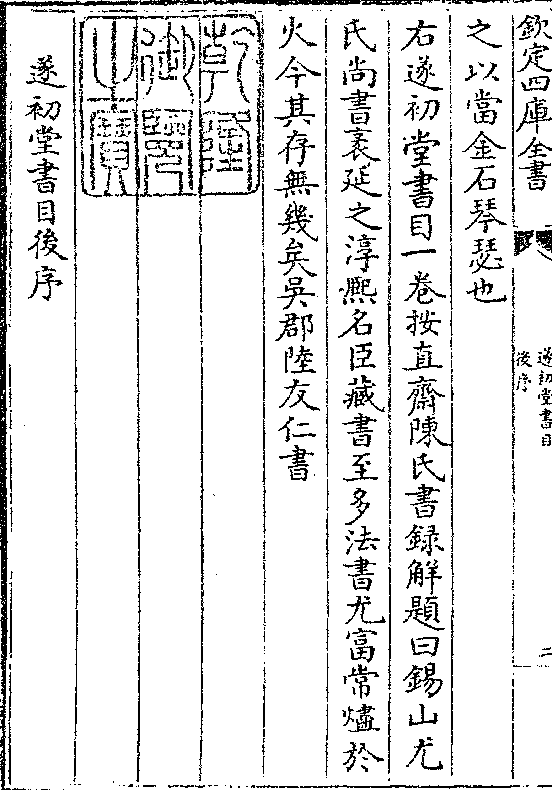 欽定四庫全書
遂初堂書目
後序
二
之以當金石琴瑟也
右遂初堂書目一卷按直齋陳氏書録解題曰錫山尤
氏尚書袤延之淳熙名臣藏書至多法書尤富常燼於
火今其存無幾矣吳郡陸友仁書
乾隆
御覽
之寶
遂初堂書目後序